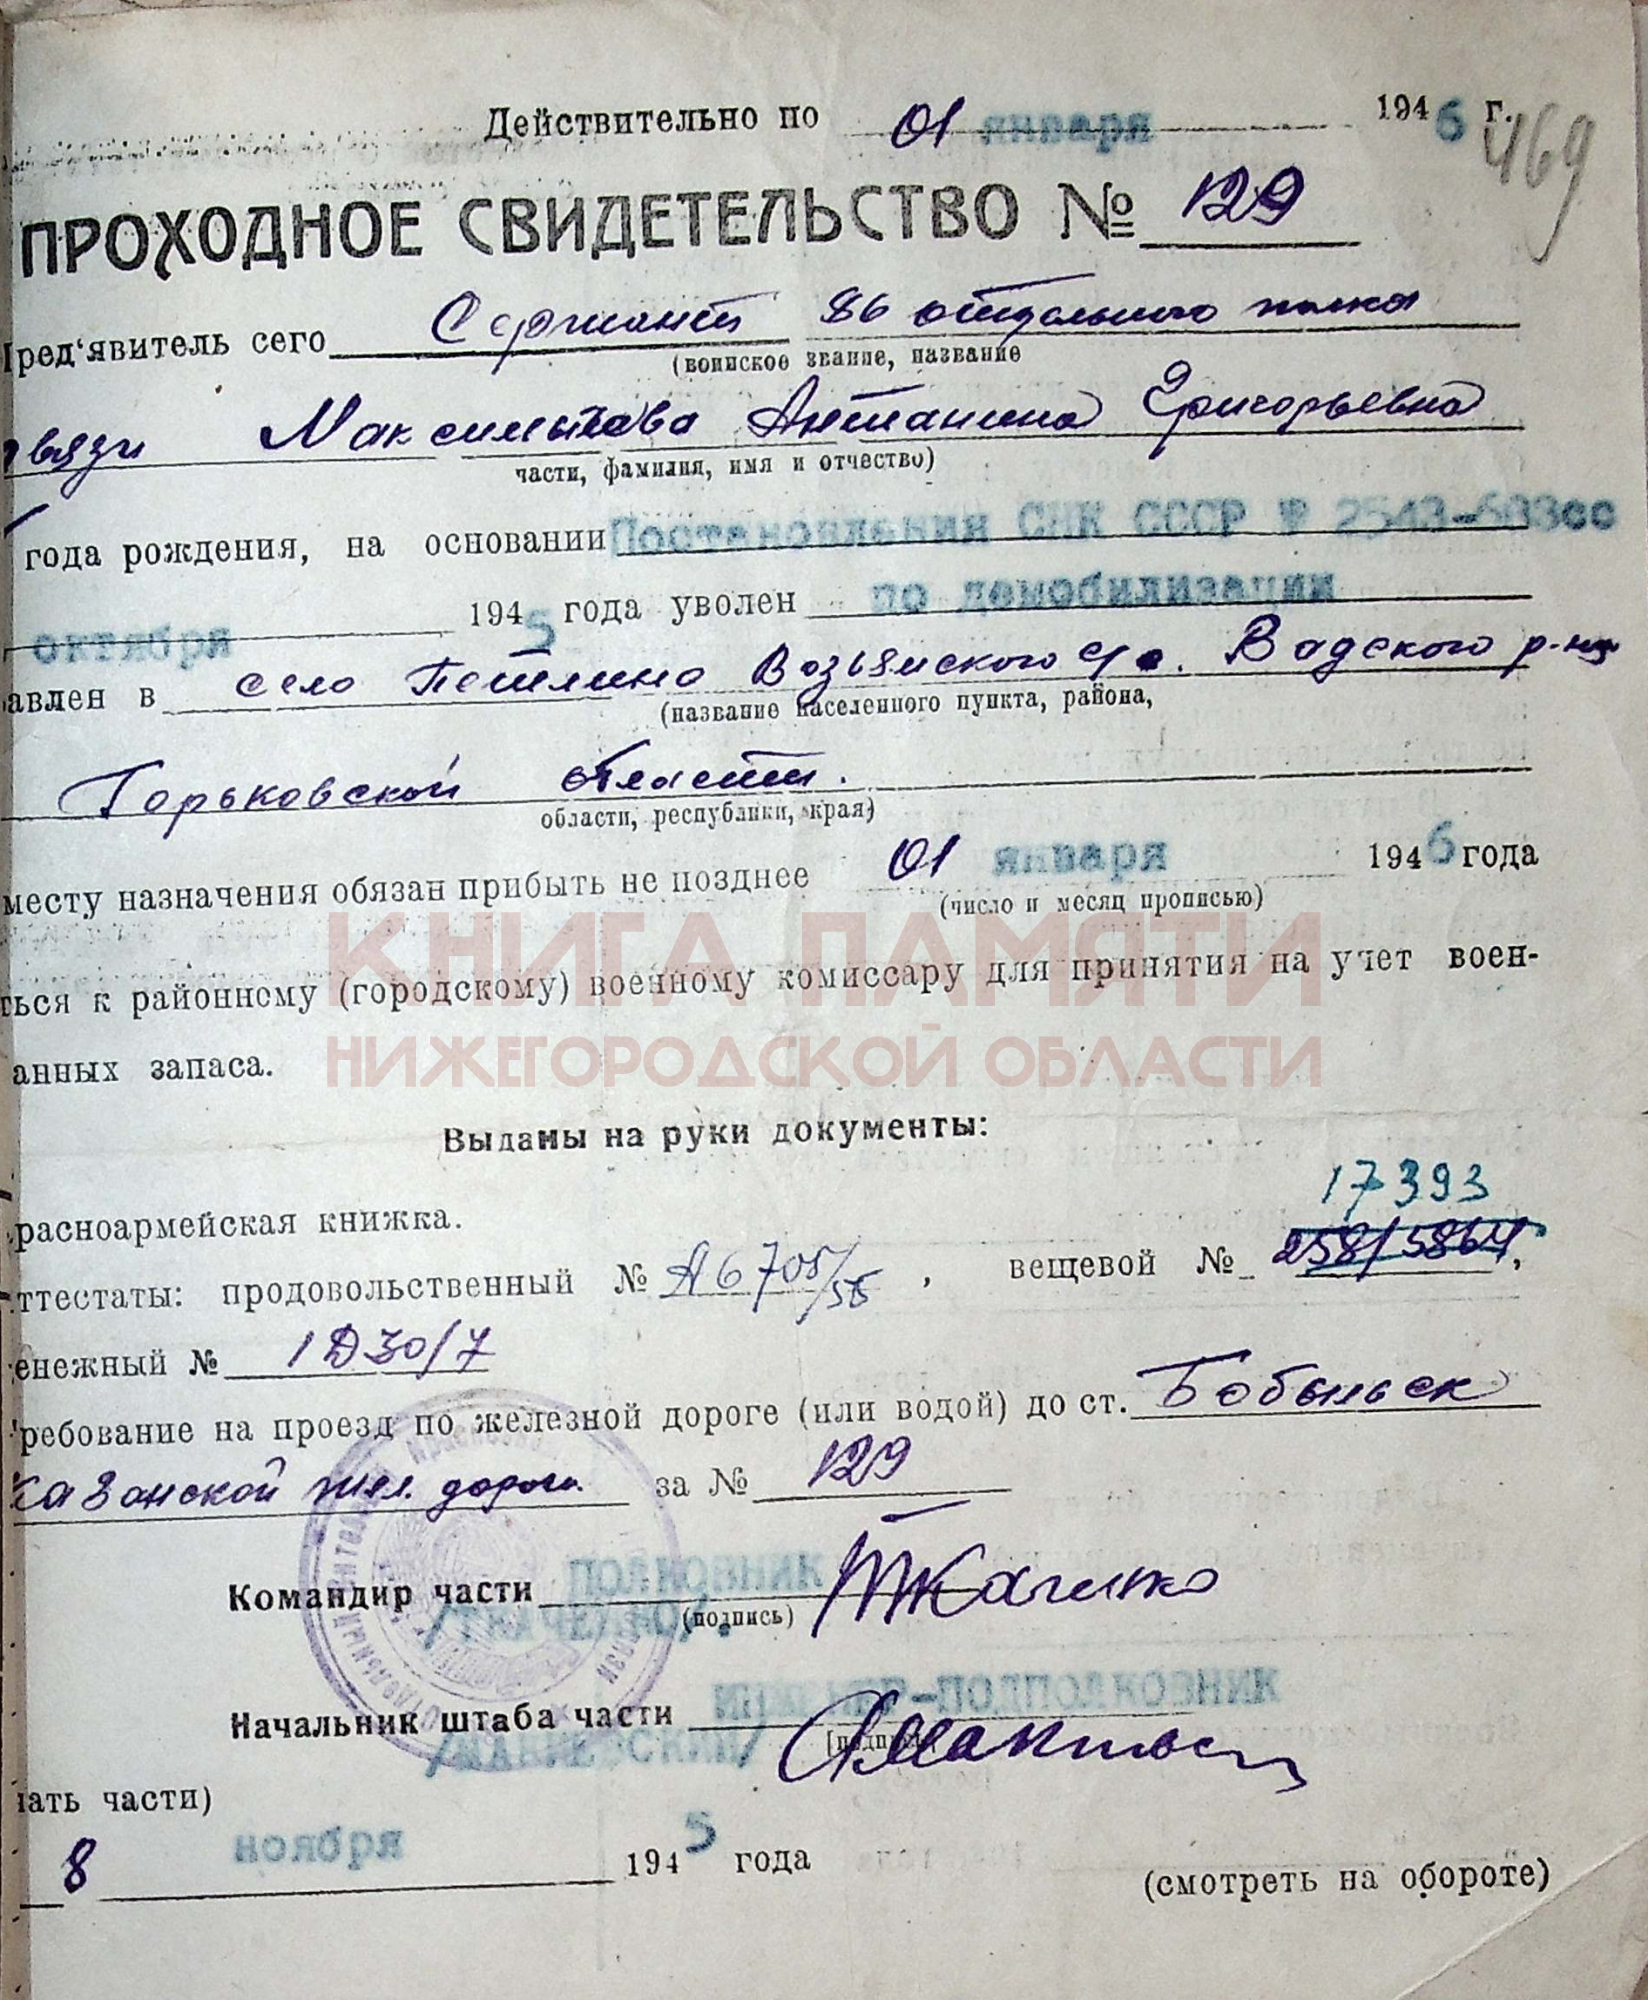 Действительно по 01 января 1946 г.
469
ПРОХОДНОЕ СВИДЕТЕЛЬСТВО № 129
Пред'явитель сего Сержант 86 отдельного полка
(воинское звание, название
связи Максимычева Антанина Григорьевна
части, фамилия, имя и отчество)
года рождения, на основании Постановления СНК СССР № 2543-683сс
октября 1945 года уволен по демобилизации
авлен в село Петлино Возьянского с/с. Вадского р-на
(название населенного пункта, района,
Горьковской области.
области, республики, края)
месту назначения обязан прибыть не позднее 01 января 1946 года
(число и месяц прописью)
КНИГА ПАМЯТИ
ться к районному (городскому) военному комиссару для принятия на учет воен-
НИЖЕГОРОДСКОЙ ОБЛАСТИ
анных запаса.
Выданы на руки документы:
17393
расноармейская книжка.
ттестаты: продовольственный № А6705/56, вещевой № 258/5864,
енежный № 1Д30/7
ребование на проезд по железной дороге (или водой) до ст. Бобыльск
Казанской жел. дороги за № 129
Командир части ПОЛКОВНИК Ткаченко
/ТКАЧЕНКО/. (подпись)
Начальник штаба части ИНЖЕНЕР-ПОДПОЛКОВНИК
/МАКИЕВСКИЙ/
чать части)
8 ноября 1945 года
(смотреть на обороте)